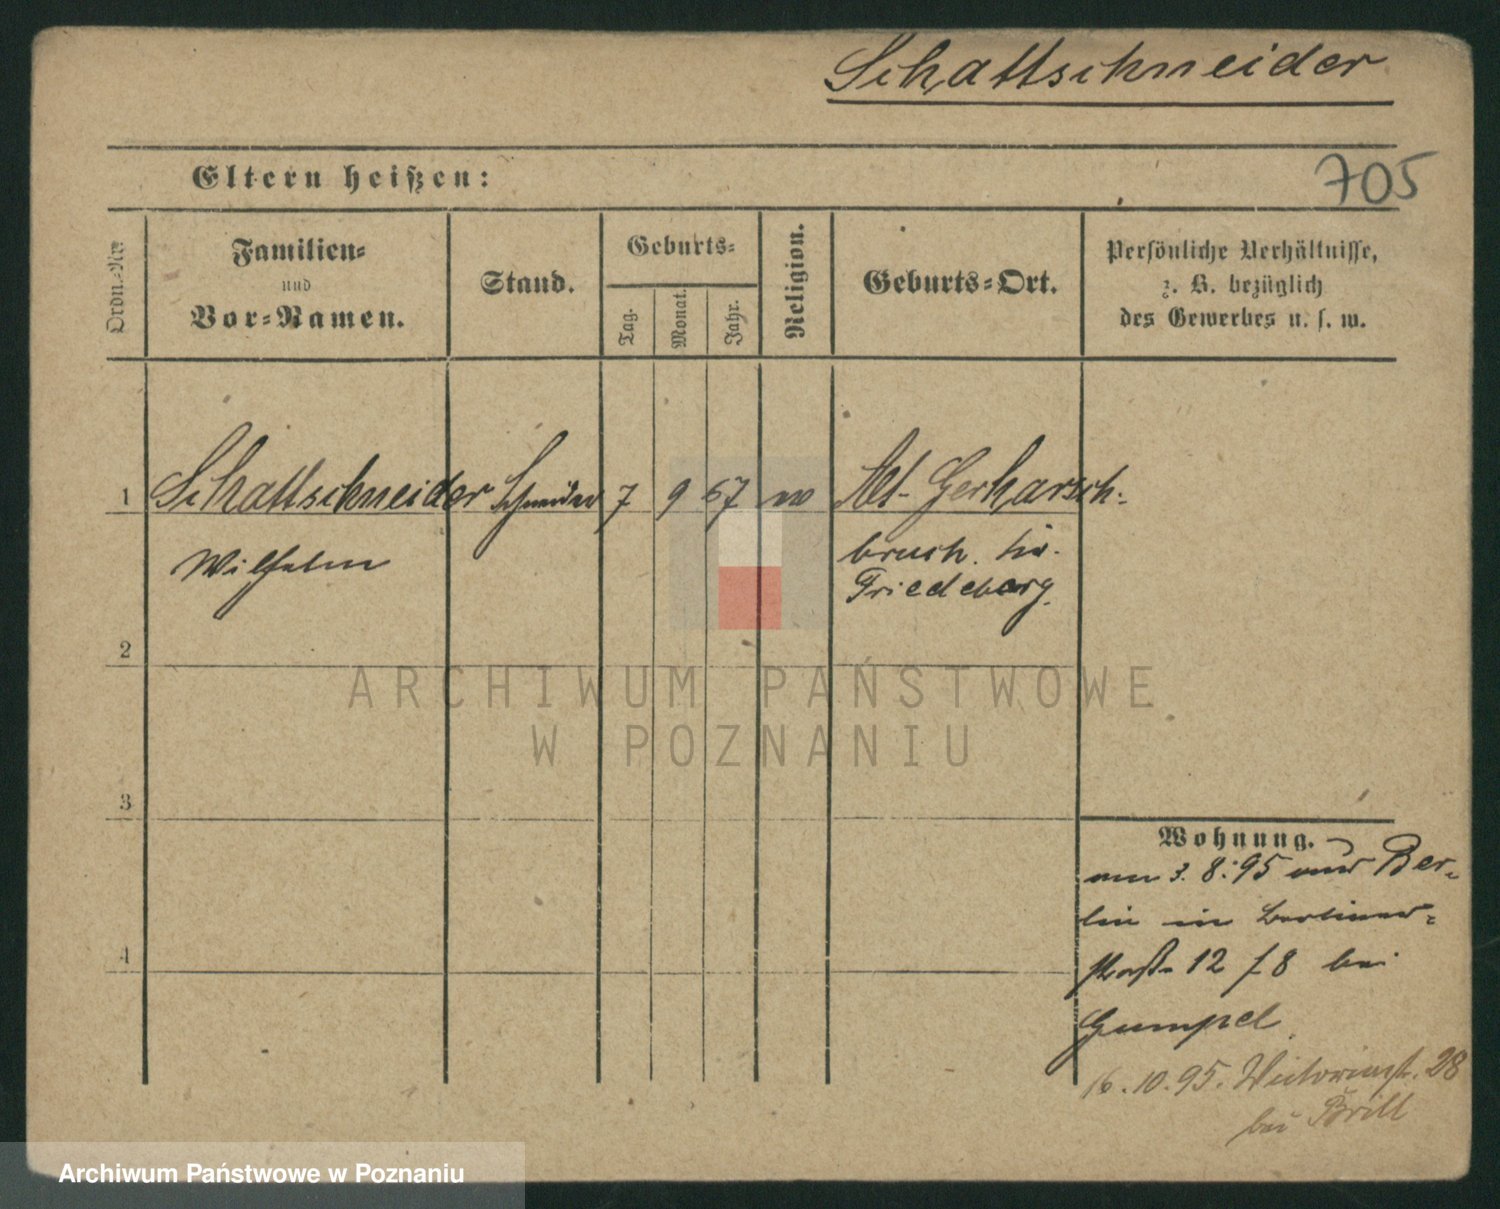 Schattschneider
Eltern heißen:
705
Ordn.-Nr.
Familien-
und
Vor-Namen.
Stand.
Geburts-
Tag.
Monat.
Jahr.
Religion.
Geburts-Ort.
Persönliche Verhältnisse,
z. B. bezüglich
des Gewerbes u. s. w.
1
Schattschneider Schneider 7 9 67 Alt-Gerharsch-
Wilhelm
bruch.
Friedeberg.
2
3
4
Wohnung.
am 3.8.95 aus Ber-
lin in Berliner-
straße 12 bei
Gumpel
16.10.95. Victoriastr. 28
bei Brill
ARCHIWUM PAŃSTWOWE
W POZNANIU
Archiwum Państwowe w Poznaniu